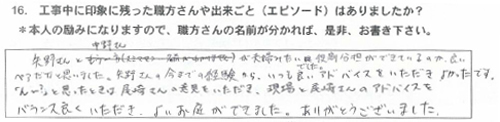 16. 工事中に印象に残った職方さんや出来ごと（エピソード）はありましたか？
＊本人の励みになりますので、職方さんの名前が分かれば、是非、お書き下さい。
中野さん
矢野さんと が夫婦みたいに役割分担ができているのか、良い
ペアだなと思いました。矢野さんの今までの経験から、いつも良いアドバイスをいただき よかったです。
「ん〜」と思ったときは尾崎さんの意見をいただき、現場と尾崎さんのアドバイスを
バランス良くいただき、よいお庭ができました。ありがとうございました。